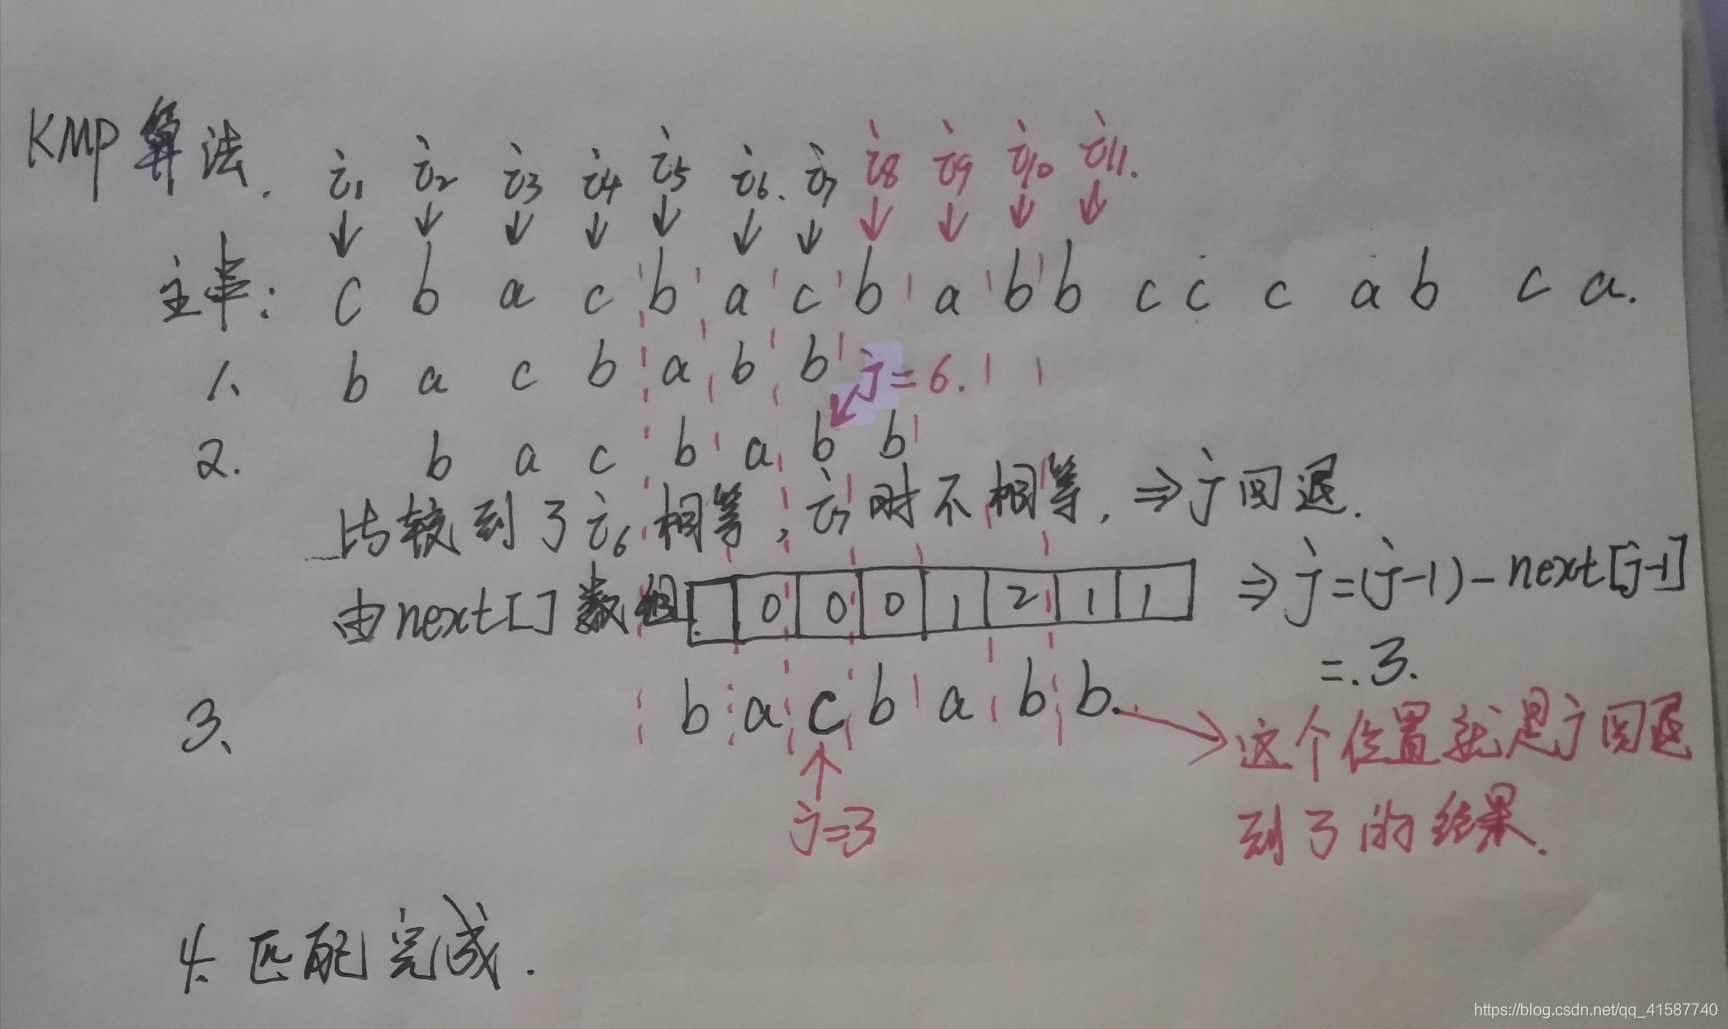 KMP算法.
i1 i2 i3 i4 i5 i6. i7 i8 i9 i10 i11.
主串: c b a c b a c b a b b c c c a b c a.
1、 b a c b a b b j=6.
2. b a c b a b b
比较到了i6相等,i7时不相等,⇒j回退.
由next[]数组 0 0 0 1 2 1 1 ⇒j=(j-1)-next[j-1]
=.3.
3、 b a c b a b b. 这个位置就是j回退
到了的结果.
j=3
4、匹配完成.
https://blog.csdn.net/qq_41587740